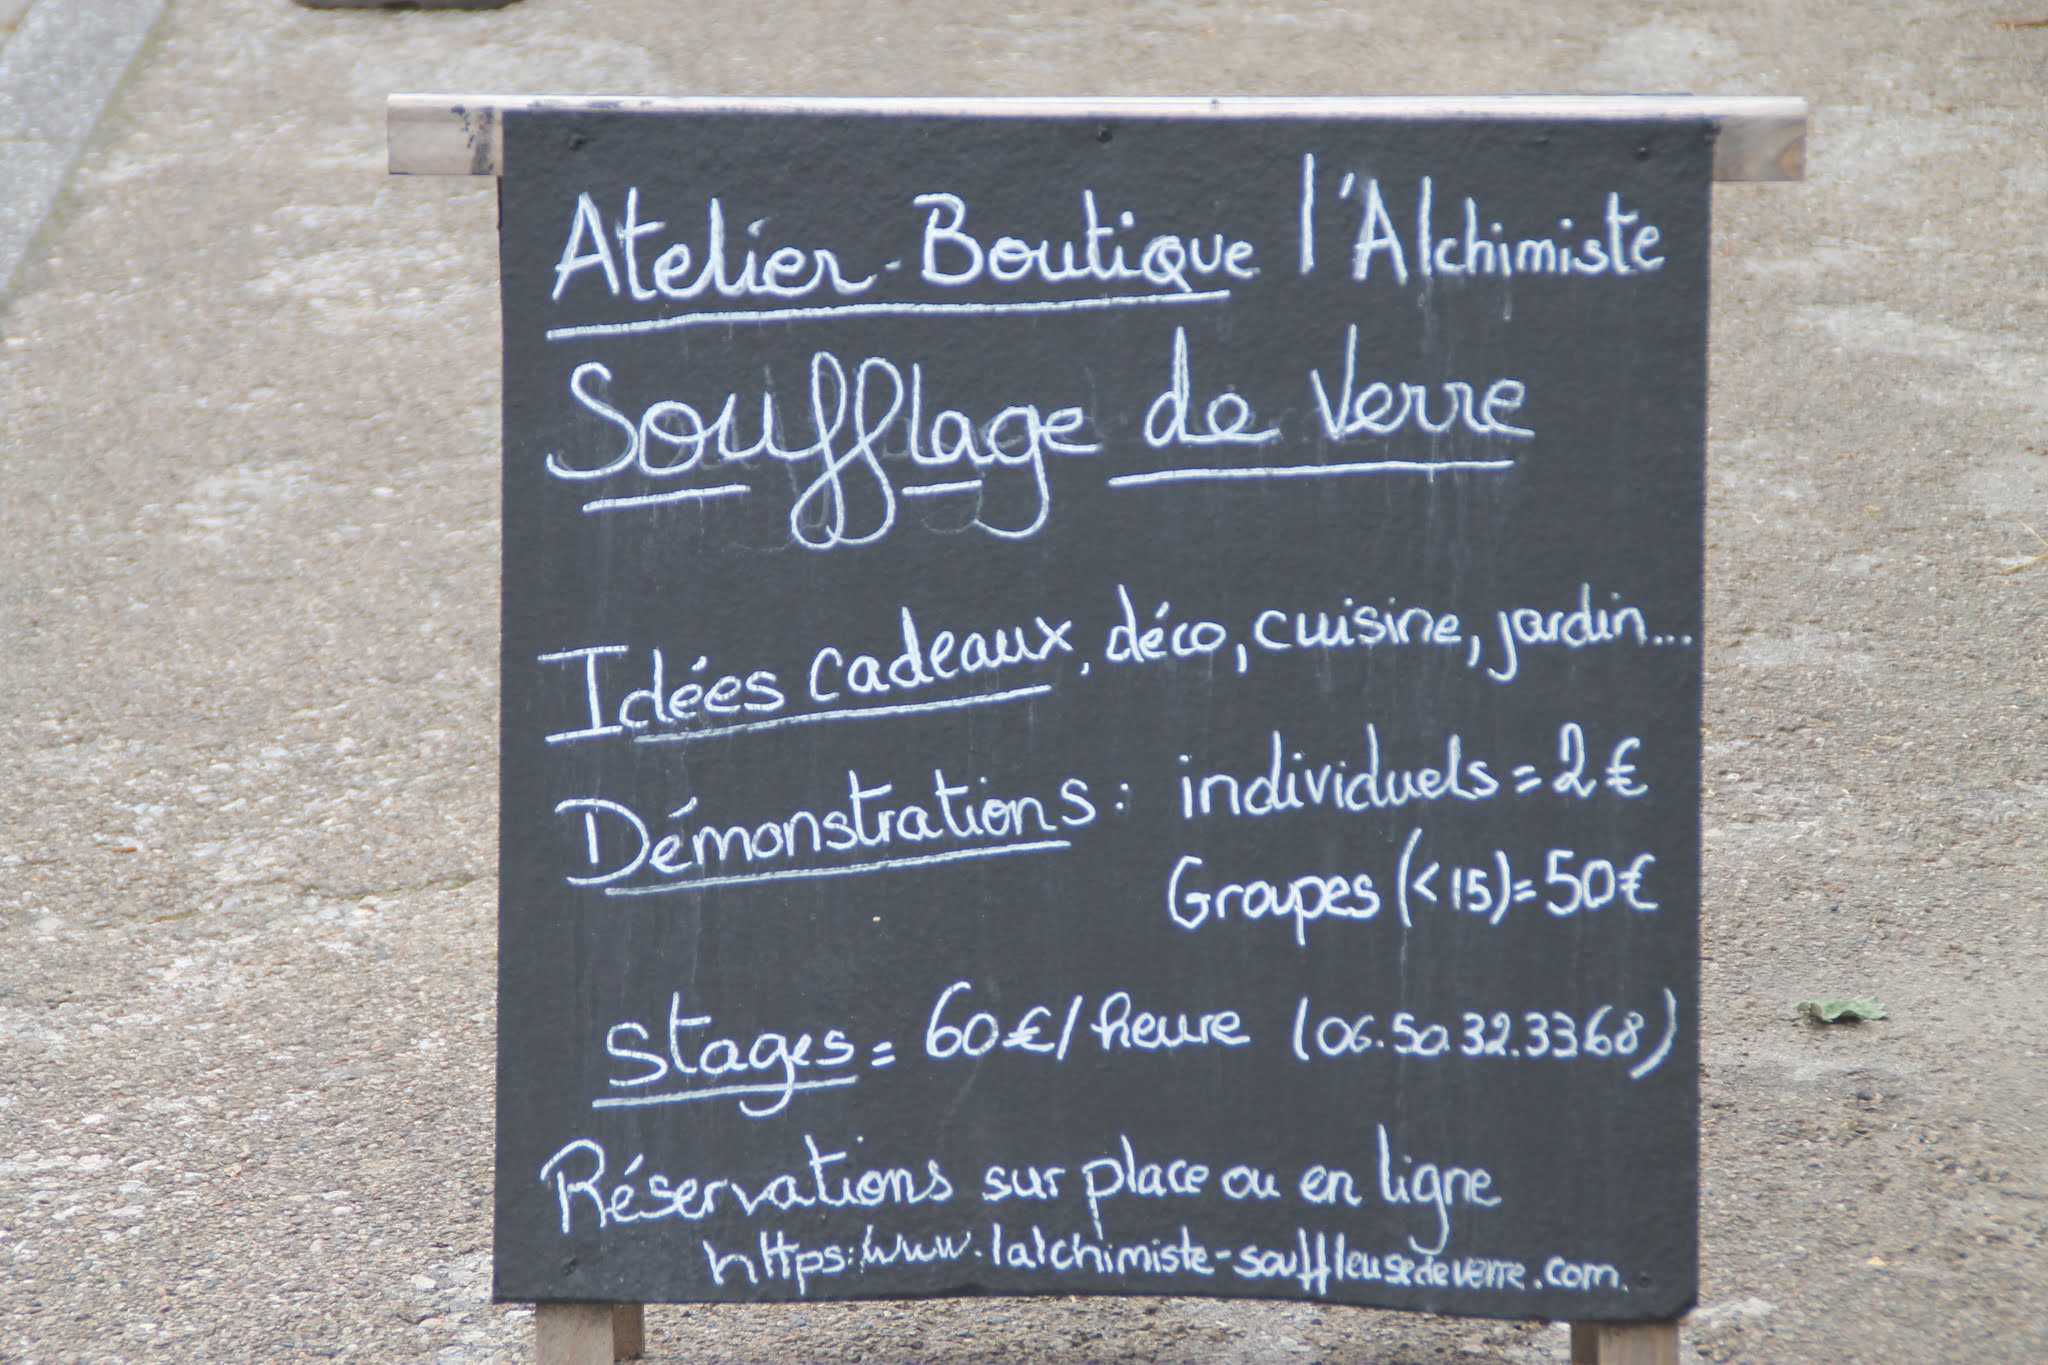 Atelier-Boutique l'Alchimiste
Soufflage de Verre
Idées cadeaux, déco, cuisine, jardin...
Démonstrations : individuels = 2€
Groupes (<15) = 50€
Stages = 60€/heure (06.50.32.33.68)
Réservations sur place ou en ligne
https://www.lalchimiste-souffleusedeverre.com